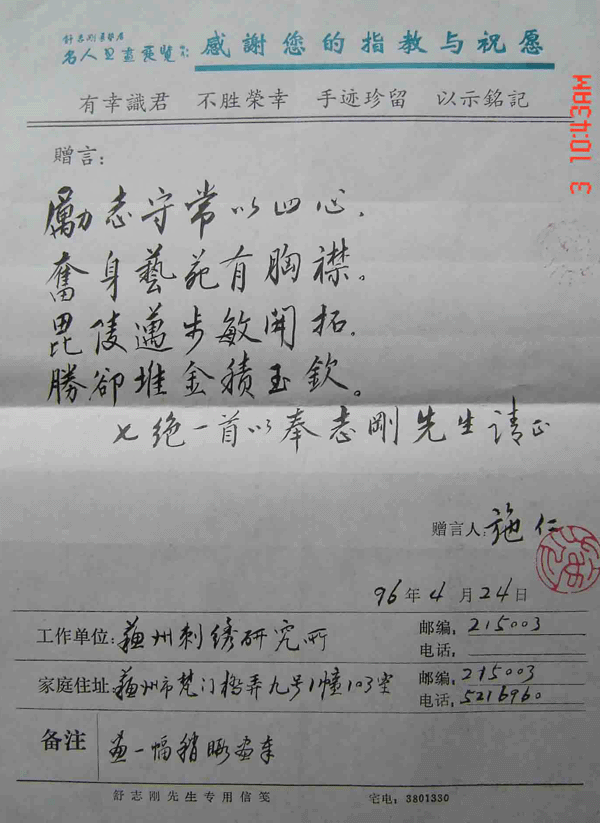 舒志刚
名人 展覽 感謝您的指教与祝愿
有幸識君 不胜榮幸 手迹珍留 以示銘記
3 10:43AM
赠言：
勵志守常以四心，
奮身藝苑有胸襟。
毘陵邁步敏開拓，
勝卻堆金積玉欽。
七绝一首以奉志剛先生请正
赠言人：施仁
96年4月24日
工作单位：蘇州刺绣研究所 邮编，215003
电话，
家庭住址：蘇州市 门 弄九号1幢103室 邮编，215003
电话，5216960
备注 画一幅稍
舒志刚先生专用信笺 宅电：3801330